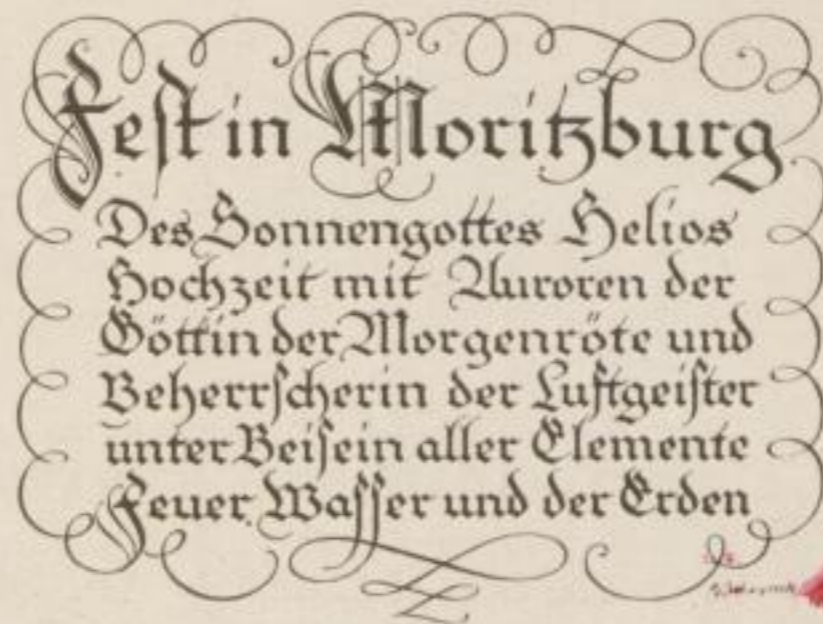 Fest in Moritzburg
Des Sonnengottes Helios
Hochzeit mit Auroren der
Göttin der Morgenröte und
Beherrscherin der Luftgeister
unter Beisein aller Elemente
Feuer, Wasser und der Erden